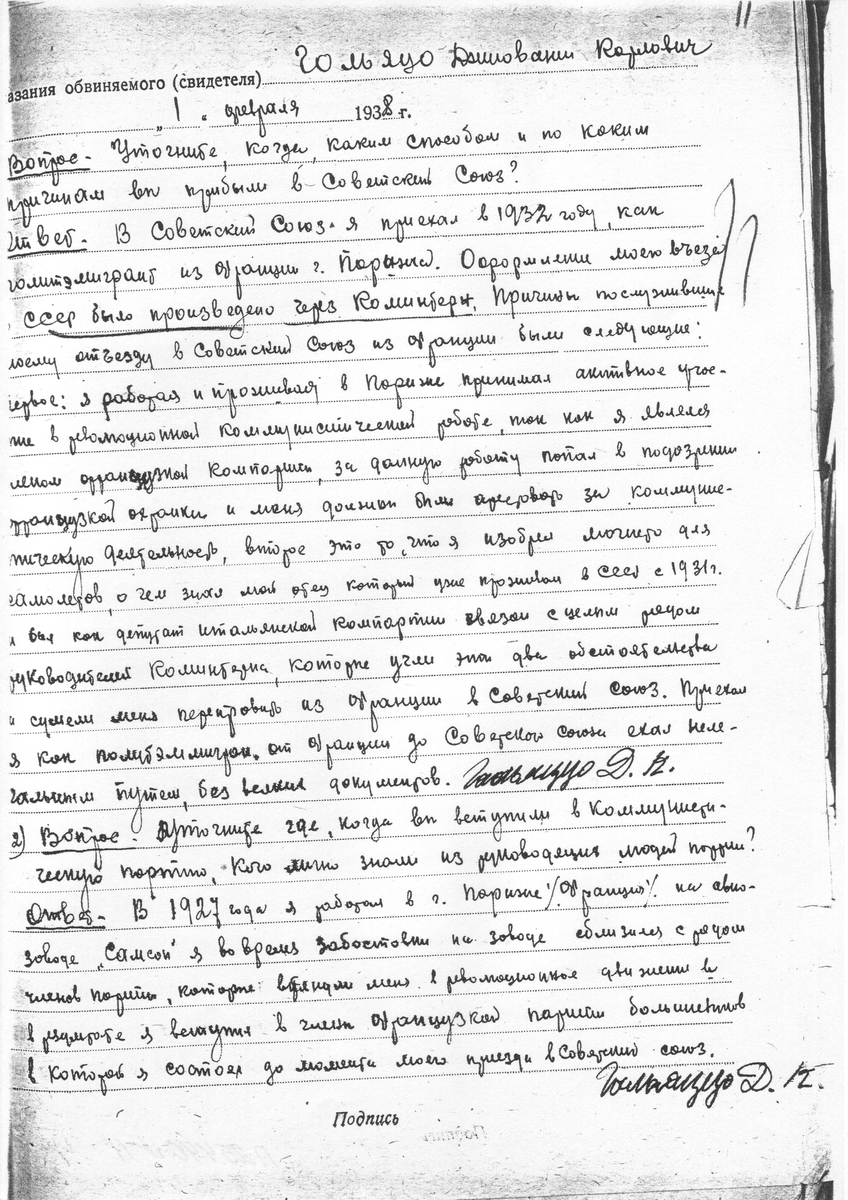 11
Гольяцо Джиовани Карлович
азания обвиняемого (свидетеля)
„1“ февраля 1938 г.
Вопрос - Уточните, когда, каким способом и по каким
причинам вы прибыли в Советский Союз?
Ответ. - В Советский Союз я приехал в 1932 году, как
политэмигрант из Франции г. Парижа. Оформление моего въезда
СССР было произведено через Коминтерн. Причины послужившие
моему отъезду в Советский Союз из Франции были следующие:
первое: я работая и проживая в Париже принимал активное учас-
тие в революционной коммунистической работе, так как я являлся
членом французской компартии, за данную работу попал в подозрении
французской охранки и меня должны были арестовать за коммунис-
тическую деятельность, второе это то, что я изобрел
самолетов, о чем знал мой отец который уже проживал в СССР с 1931 г.
и был как депутат итальянской компартии связан с целым рядом
руководителей Коминтерна, которые учли эти два обстоятельства
и сумели меня из Франции в Советский Союз. Приехал
я как политэммигран. от Франции до Советского Союза ехал неле-
гальным путем, без всяких документов. Гальяццо Д. К.
2) Вопрос - Уточните где, когда вы вступили в Коммунисти-
ческую партию, кого лично знали из руководящих людей партии?
Ответ - В 1927 года я работал в г. Париже /Франция/ на авио-
заводе „Самсон“ я во время забастовки на заводе сблизился с рядом
членов партии, которые меня в революционное движение и
в результате я вступил в члены Французской партии большевиков
в которой я состоял до момента моего приезда в Советский союз.
Гальяццо Д. К.
Подпись